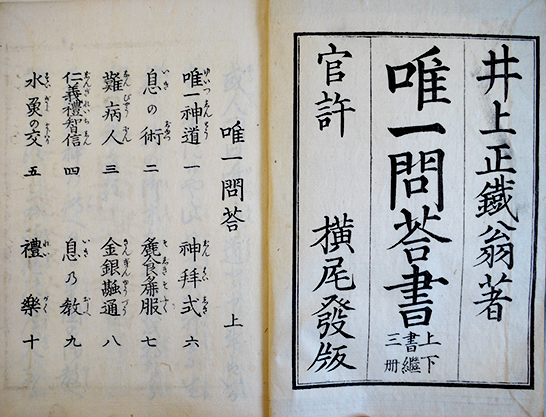 井上正鐵翁著
唯一問荅書
上下
書繼
三册
官許 横尾發版
唯一問荅 上
唯一神道 一 神拜式 六
息の術 二 麁食麁服 七
難病人 三 金銀融通 八
仁義禮智信 四 息乃教 九
水魚の交 五 禮樂 十